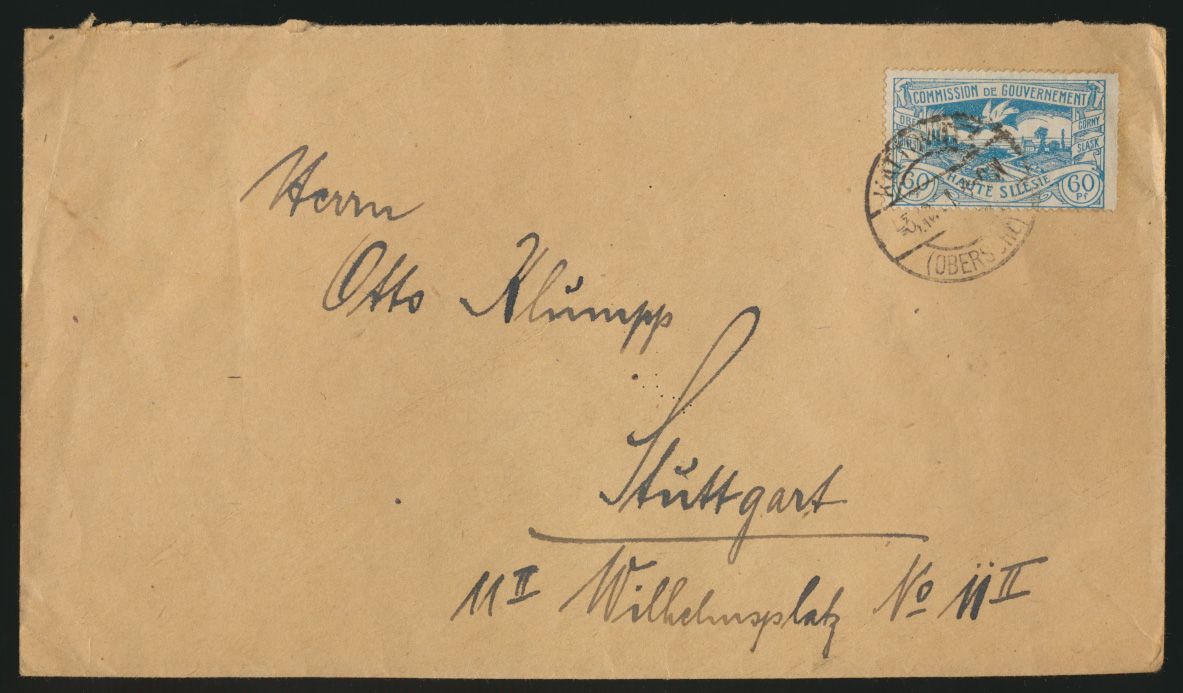 COMMISSION DE GOUVERNEMENT
GORNY
SLASK
60 HAUTE SILESIE 60
Pf
(OBERS
Herrn
Otto Klumpp
Stuttgart
11 II Wilhelmsplatz No 11 II